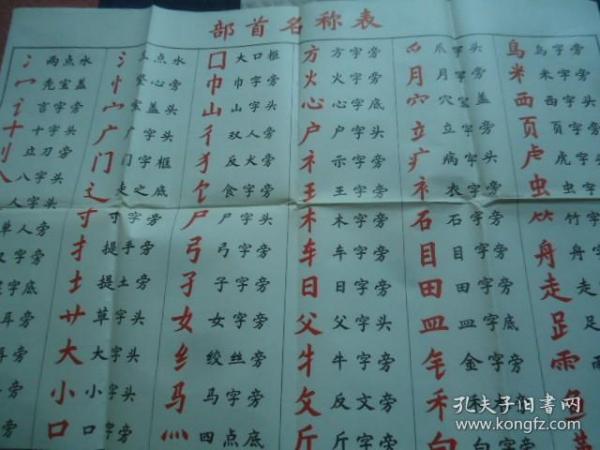 部首名称表
冫 两点水
冖 秃宝盖
讠 言字旁
十 十字头
刂 立刀旁
八 八字头
人字头
单人旁
氵 三点水
忄 竖心旁
宀 宝盖头
广 广字头
门 门字框
辶 走之底
寸 寸字旁
扌 提手旁
土 提土旁
艹 草字头
大 大字头
小 小字头
口 口字旁
囗 大口框
巾 巾字旁
山 山字头
彳 双人旁
犭 反犬旁
饣 食字旁
尸 尸字头
弓 弓字旁
子 子字旁
女 女字旁
纟 绞丝旁
马 马字旁
灬 四点底
方 方字旁
火 火字旁
心 心字底
户 户字头
礻 示字旁
王 王字旁
木 木字旁
车 车字旁
日 日字旁
父 父字头
牛 牛字旁
攵 反文旁
斤 斤字旁
爫 爪字头
月 月字旁
穴 穴宝盖
立 立字旁
疒 病字头
衤 衣字旁
石 石字旁
目 目字旁
田 田字旁
皿 皿字底
钅 金字旁
禾
白 白字旁
鸟 鸟字旁
米 米字旁
西 西字头
页 页字旁
虍 虎字头
虫 虫字旁
⺮ 竹字
舟 舟字
走 走
足 足
雨 雨
孔夫子旧书网
www.kongfz.com